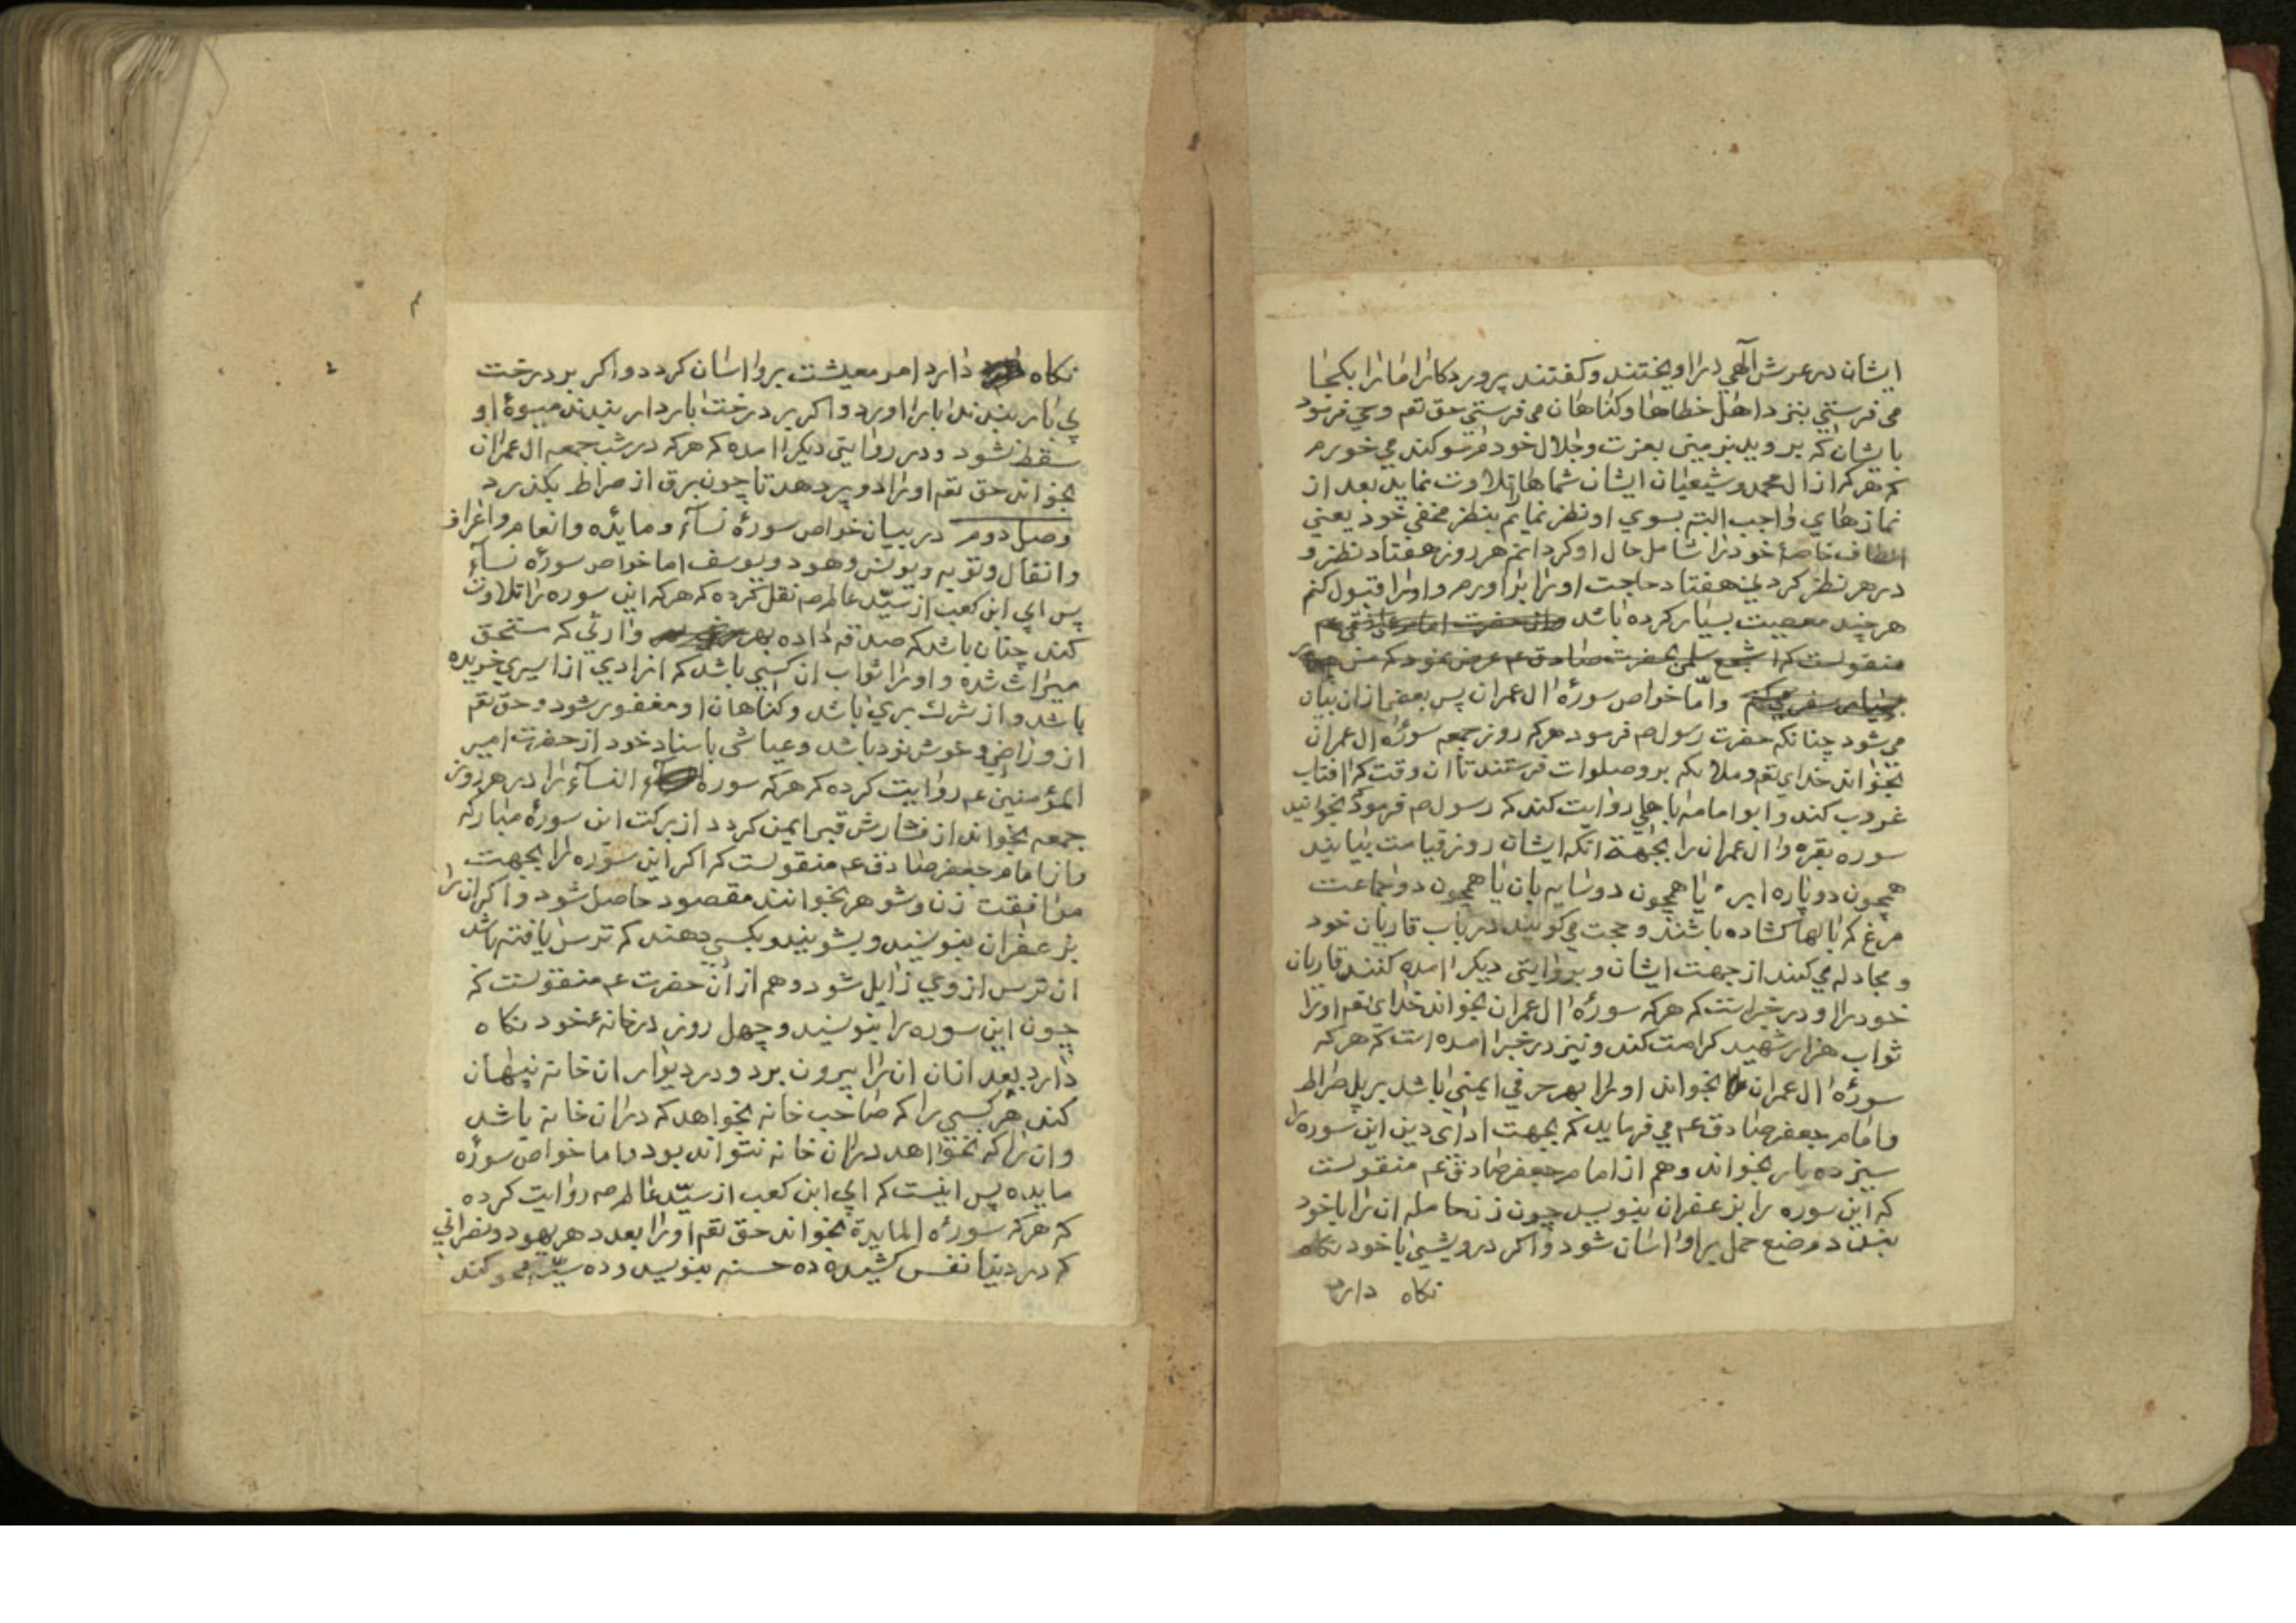 ایشان در عرش آلهی در اویختند و کفتند پروردکارا ما را بکجا
می فرستی بنزد اهل خطاها و کناهان می فرستی حق تعم وحی فرمود
بایشان که بروید بزمین بعزت و جلال خودم سوکند می خورم
که هرکه از ال محمد و شیعیان ایشان شماها را تلاوت نماید بعد از
نمازهای واجب البته بسوی او نظر نمایم بنظر مخفی خود یعنی
الطاف خاصهٔ خود را شامل حال او کردانم هر روز هفتاد نظر و
در هر نظر کردنی هفتاد حاجت او را بر اورم و او را قبول کنم
هرچند معصیت بسیار کرده باشد
منقولست که اشجع سلمی بحضرت صادق عم عرض نمود که من
بسیار سفر میکنم و امّا خواص سورهٔ ال عمران پس بعضی از ان بیان
می شود چنانکه حضرت رسول صم فرمود هرکه روز جمعه سورهٔ ال عمران
بخواند خدای تعم و ملائکه برو صلوات فرستند تا ان وقت که افتاب
غروب کند و ابو امامه باهلی روایت کند که رسول صم فرمود که بخوانید
سوره بقره و ال عمران را بجهة انکه ایشان روز قیامت بیایند
همچون دو پاره ابر یا همچون دو سایه بان یا همچون دو جماعت
مرغ که بالها کشاده باشند و حجت می کویند در باب قاریان خود
و مجادله می کنند از جهت ایشان و بروایتی دیکر امده کنند قاریان
خود را و در خبر است که هرکه سورهٔ ال عمران بخواند خدای تعم او را
ثواب هزار شهید کرامت کند و نیز در خبر امده است که هرکه
سورهٔ ال عمران بخواند او را بهر حرفی ایمنی باشد بر پل صراط
و امام جعفر صادق عم می فرماید که بجهت ادای دین این سوره را
سیزده بار بخواند و هم از امام جعفر صادق عم منقولست
که این سوره را بزعفران بنویسد چون زن حامله ان را با خود
بندد وضع حمل بر او اسان شود و اکر درویشی با خود نکاه
نکاه دارد
نکاه دارد امر معیشت برو اسان کردد و اکر بر درخت
بی بار بندند ابار اورد و اکر بر درخت باردار بندند میوهٔ او
سقط نشود و در روایتی دیکر امده که هرکه در شب جمعه ال عمران
بخواند حق تعم او را دو پر دهد تا چون برق از صراط بکذرد
وصل دوم در بیان خواص سورهٔ نسآء و مائده و انعام و اعراف
و انفال و توبه و یونس و هود و یوسف اما خواص سورهٔ نسآء
پس ابی ابن کعب از سیّد عالم صم نقل کرده که هرکه این سوره را تلاوت
کند چنان باشد که صدقه داده بهر وارثی که مستحق
میراث شده و او را ثواب ان کسی باشد که ازادی از اسیری خریده
باشد و از شرك بری باشد و کناهان او مغفور شود و حق تعم
از و راضی و خوشنود باشد و عیاشی باسناد خود از حضرت امیر
المؤمنین عم روایت کرده که هرکه سوره النسآء را در هر روز
جمعه بخواند از فشارش قبر ایمن کردد از برکت این سورهٔ مبارکه
و از امام جعفر صادق عم منقولست که اکر این سوره را بجهت
موافقت زن و شوهر بخوانند مقصود حاصل شود و اکر ان را
بزعفران بنویسند و بشویند و بکسی دهند که ترس یافته باشد
ان ترس از وی زایل شود و هم از ان حضرت عم منقولست که
چون این سوره را بنویسند و چهل روز در خانهٔ خود نکاه
دارد بعد ازان ان را بیرون برد و در دیوار ان خانه پنهان
کند هر کسی را که صاحب خانه بخواهد که در ان خانه باشد
و ان را که نخواهد در ان خانه نتواند بود و اما خواص سورهٔ
مایده پس اینست که ابی ابن کعب از سیّد عالم صم روایت کرده
که هرکه سورهٔ المایدة بخواند حق تعم او را بعدد هر یهود و نصرانی
که در دنیا نفس کشیده ده حسنه بنویسد و ده سیّئه محو کند